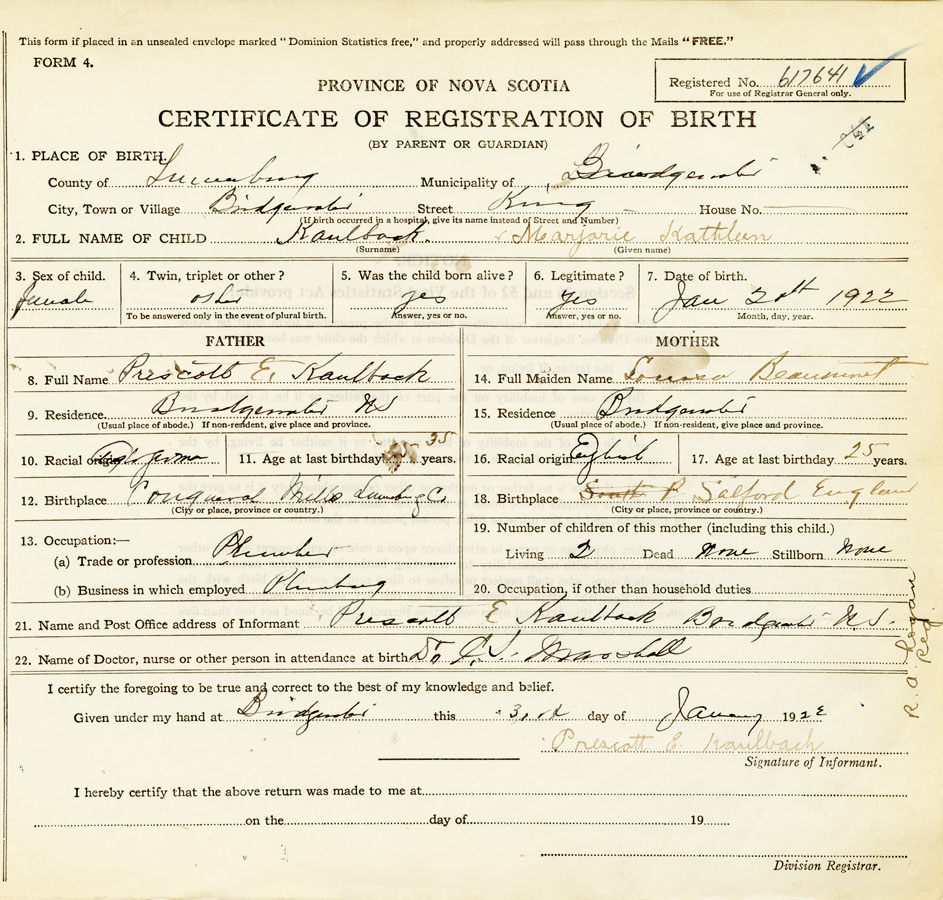 This form if placed in an unsealed envelope marked "Dominion Statistics free," and properly addressed will pass through the Mails "FREE."
FORM 4.
Registered No. 617641
For use of Registrar General only.
PROVINCE OF NOVA SCOTIA
CERTIFICATE OF REGISTRATION OF BIRTH
(BY PARENT OR GUARDIAN)
1. PLACE OF BIRTH.
County of Lunenburg Municipality of Bridgewater
City, Town or Village Bridgewater Street King House No.
(If birth occurred in a hospital, give its name instead of Street and Number)
2. FULL NAME OF CHILD Kaulback. Marjorie Kathleen
(Surname) (Given name)
3. Sex of child. 4. Twin, triplet or other? 5. Was the child born alive? 6. Legitimate? 7. Date of birth.
female yes yes Jan 20th 1922
To be answered only in the event of plural birth. Answer, yes or no. Answer, yes or no. Month, day, year.
FATHER MOTHER
8. Full Name Prescott E. Kaulback 14. Full Maiden Name Louisa Beaumont
9. Residence. Bridgewater NS 15. Residence Bridgewater
(Usual place of abode.) If non-resident, give place and province. (Usual place of abode.) If non-resident, give place and province.
10. Racial origin 11. Age at last birthday 35 years. 16. Racial origin English 17. Age at last birthday 25 years.
12. Birthplace Conquerall Mills Lunenburg Co. 18. Birthplace Salford England
(City or place, province or country.) (City or place, province or country.)
19. Number of children of this mother (including this child.)
13. Occupation:—
(a) Trade or profession Plumber Living 2 Dead None Stillborn None
(b) Business in which employed Plumbing 20. Occupation, if other than household duties
21. Name and Post Office address of Informant Prescott E Kaulback Bridgewater N.S.
22. Name of Doctor, nurse or other person in attendance at birth Marshall
I certify the foregoing to be true and correct to the best of my knowledge and belief.
Given under my hand at Bridgewater this day of January 1922
Prescott E. Kaulback
Signature of Informant.
I hereby certify that the above return was made to me at
on the day of 19
Division Registrar.
R. A. Logan
Reg.